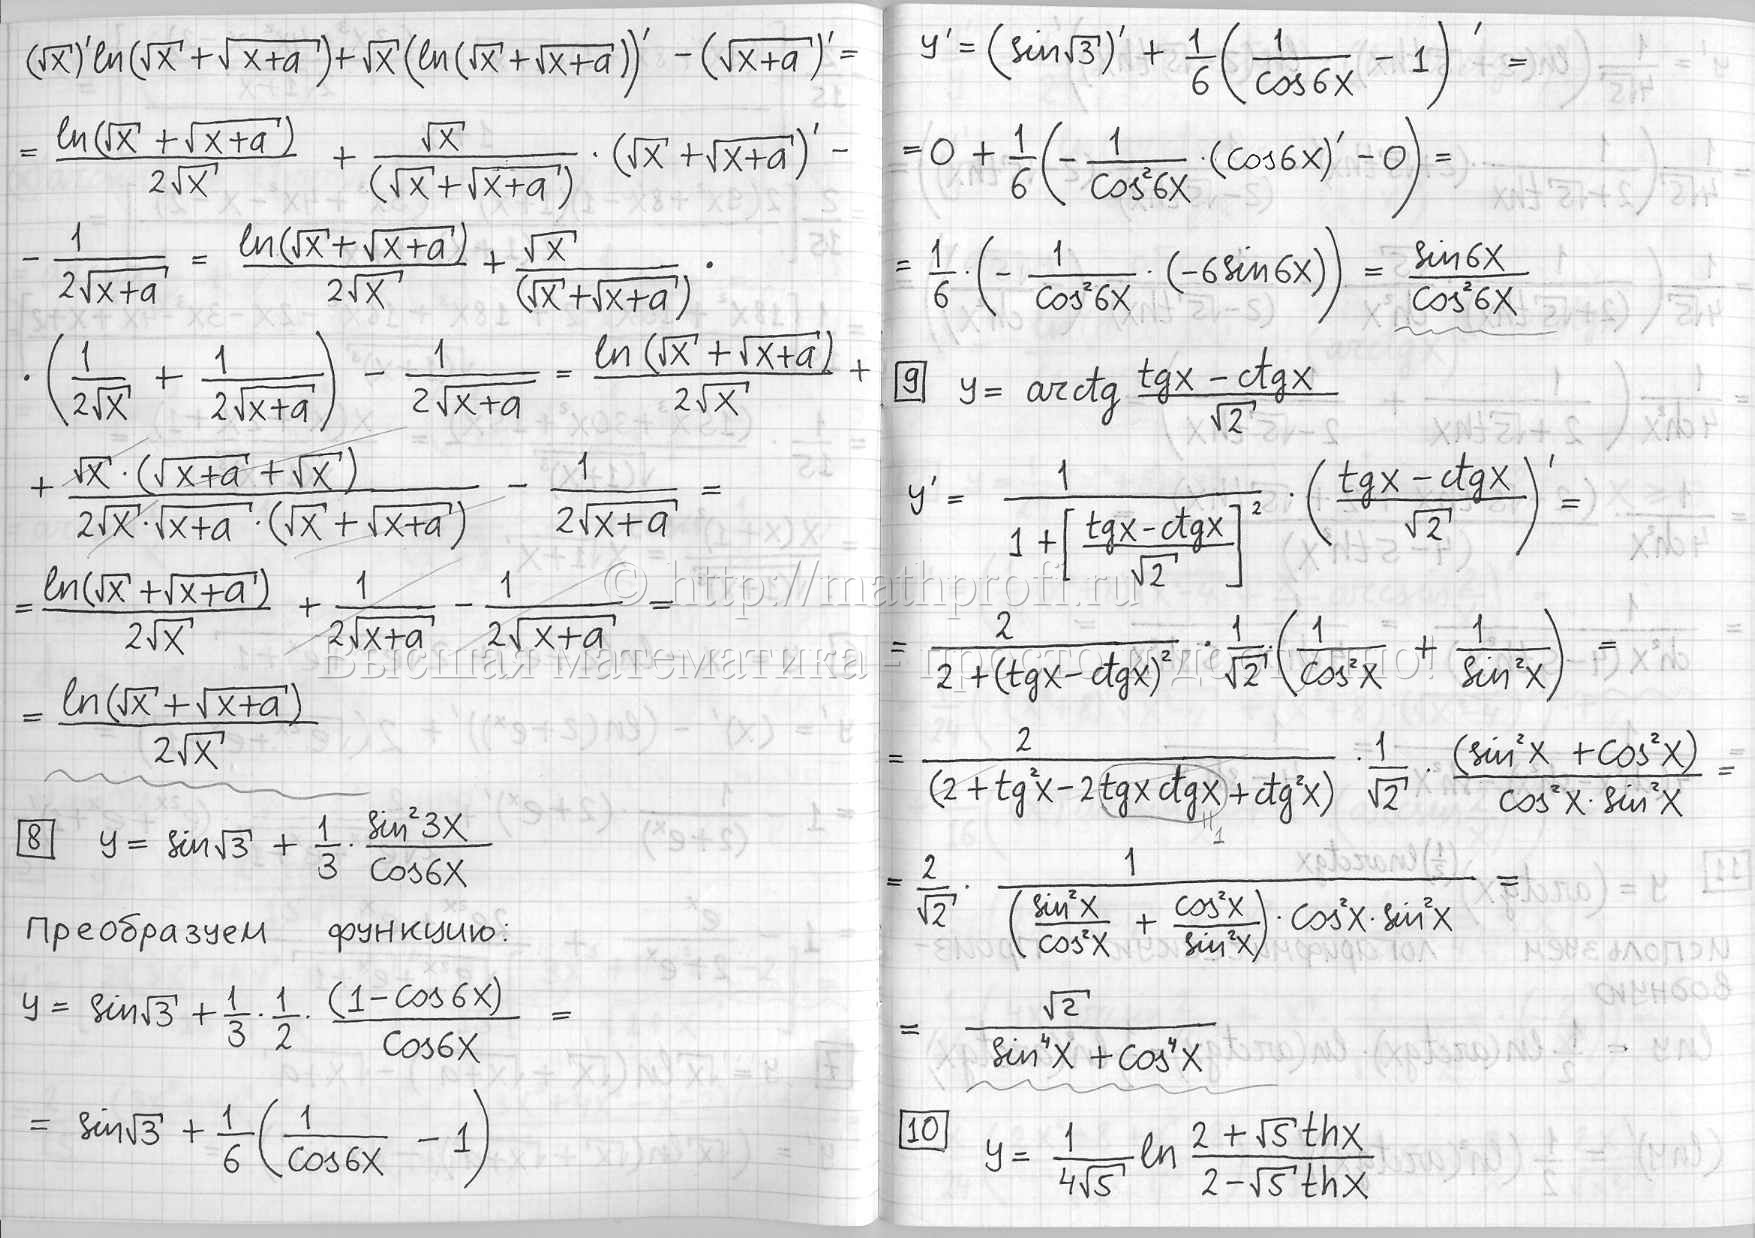 (√x)' ln(√x + √(x+a)) + √x (ln(√x + √(x+a)))' − (√(x+a))' =
= ln(√x + √(x+a)) / 2√x + √x / (√x + √(x+a)) · (√x + √(x+a))' −
− 1 / 2√(x+a) = ln(√x + √(x+a)) / 2√x + √x / (√x + √(x+a)) ·
· (1 / 2√x + 1 / 2√(x+a)) − 1 / 2√(x+a) = ln(√x + √(x+a)) / 2√x +
+ √x · (√(x+a) + √x) / 2√x · √(x+a) · (√x + √(x+a)) − 1 / 2√(x+a) =
= ln(√x + √(x+a)) / 2√x + 1 / 2√(x+a) − 1 / 2√(x+a) =
= ln(√x + √(x+a)) / 2√x
8 y = sin√3 + 1/3 · sin²3x / cos6x
Преобразуем функцию:
y = sin√3 + 1/3 · 1/2 · (1 − cos6x) / cos6x =
= sin√3 + 1/6 (1 / cos6x − 1)
y' = (sin√3)' + 1/6 (1 / cos6x − 1)' =
= 0 + 1/6 (− 1 / cos²6x · (cos6x)' − 0) =
= 1/6 · (− 1 / cos²6x · (−6sin6x)) = sin6x / cos²6x
9 y = arctg (tgx − ctgx) / √2
y' = 1 / (1 + [(tgx − ctgx) / √2]²) · ((tgx − ctgx) / √2)' =
= 2 / (2 + (tgx − ctgx)²) · 1/√2 · (1 / cos²x + 1 / sin²x) =
= 2 / (2 + tg²x − 2tgx ctgx + ctg²x) · 1/√2 · (sin²x + cos²x) / cos²x · sin²x =
॥ 1
= 2/√2 · 1 / (sin²x / cos²x + cos²x / sin²x) · cos²x · sin²x =
= √2 / (sin⁴x + cos⁴x)
10 y = 1 / 4√5 ln (2 + √5 thx) / (2 − √5 thx)
© http://mathprofi.ru
Высшая математика - просто и доступно!